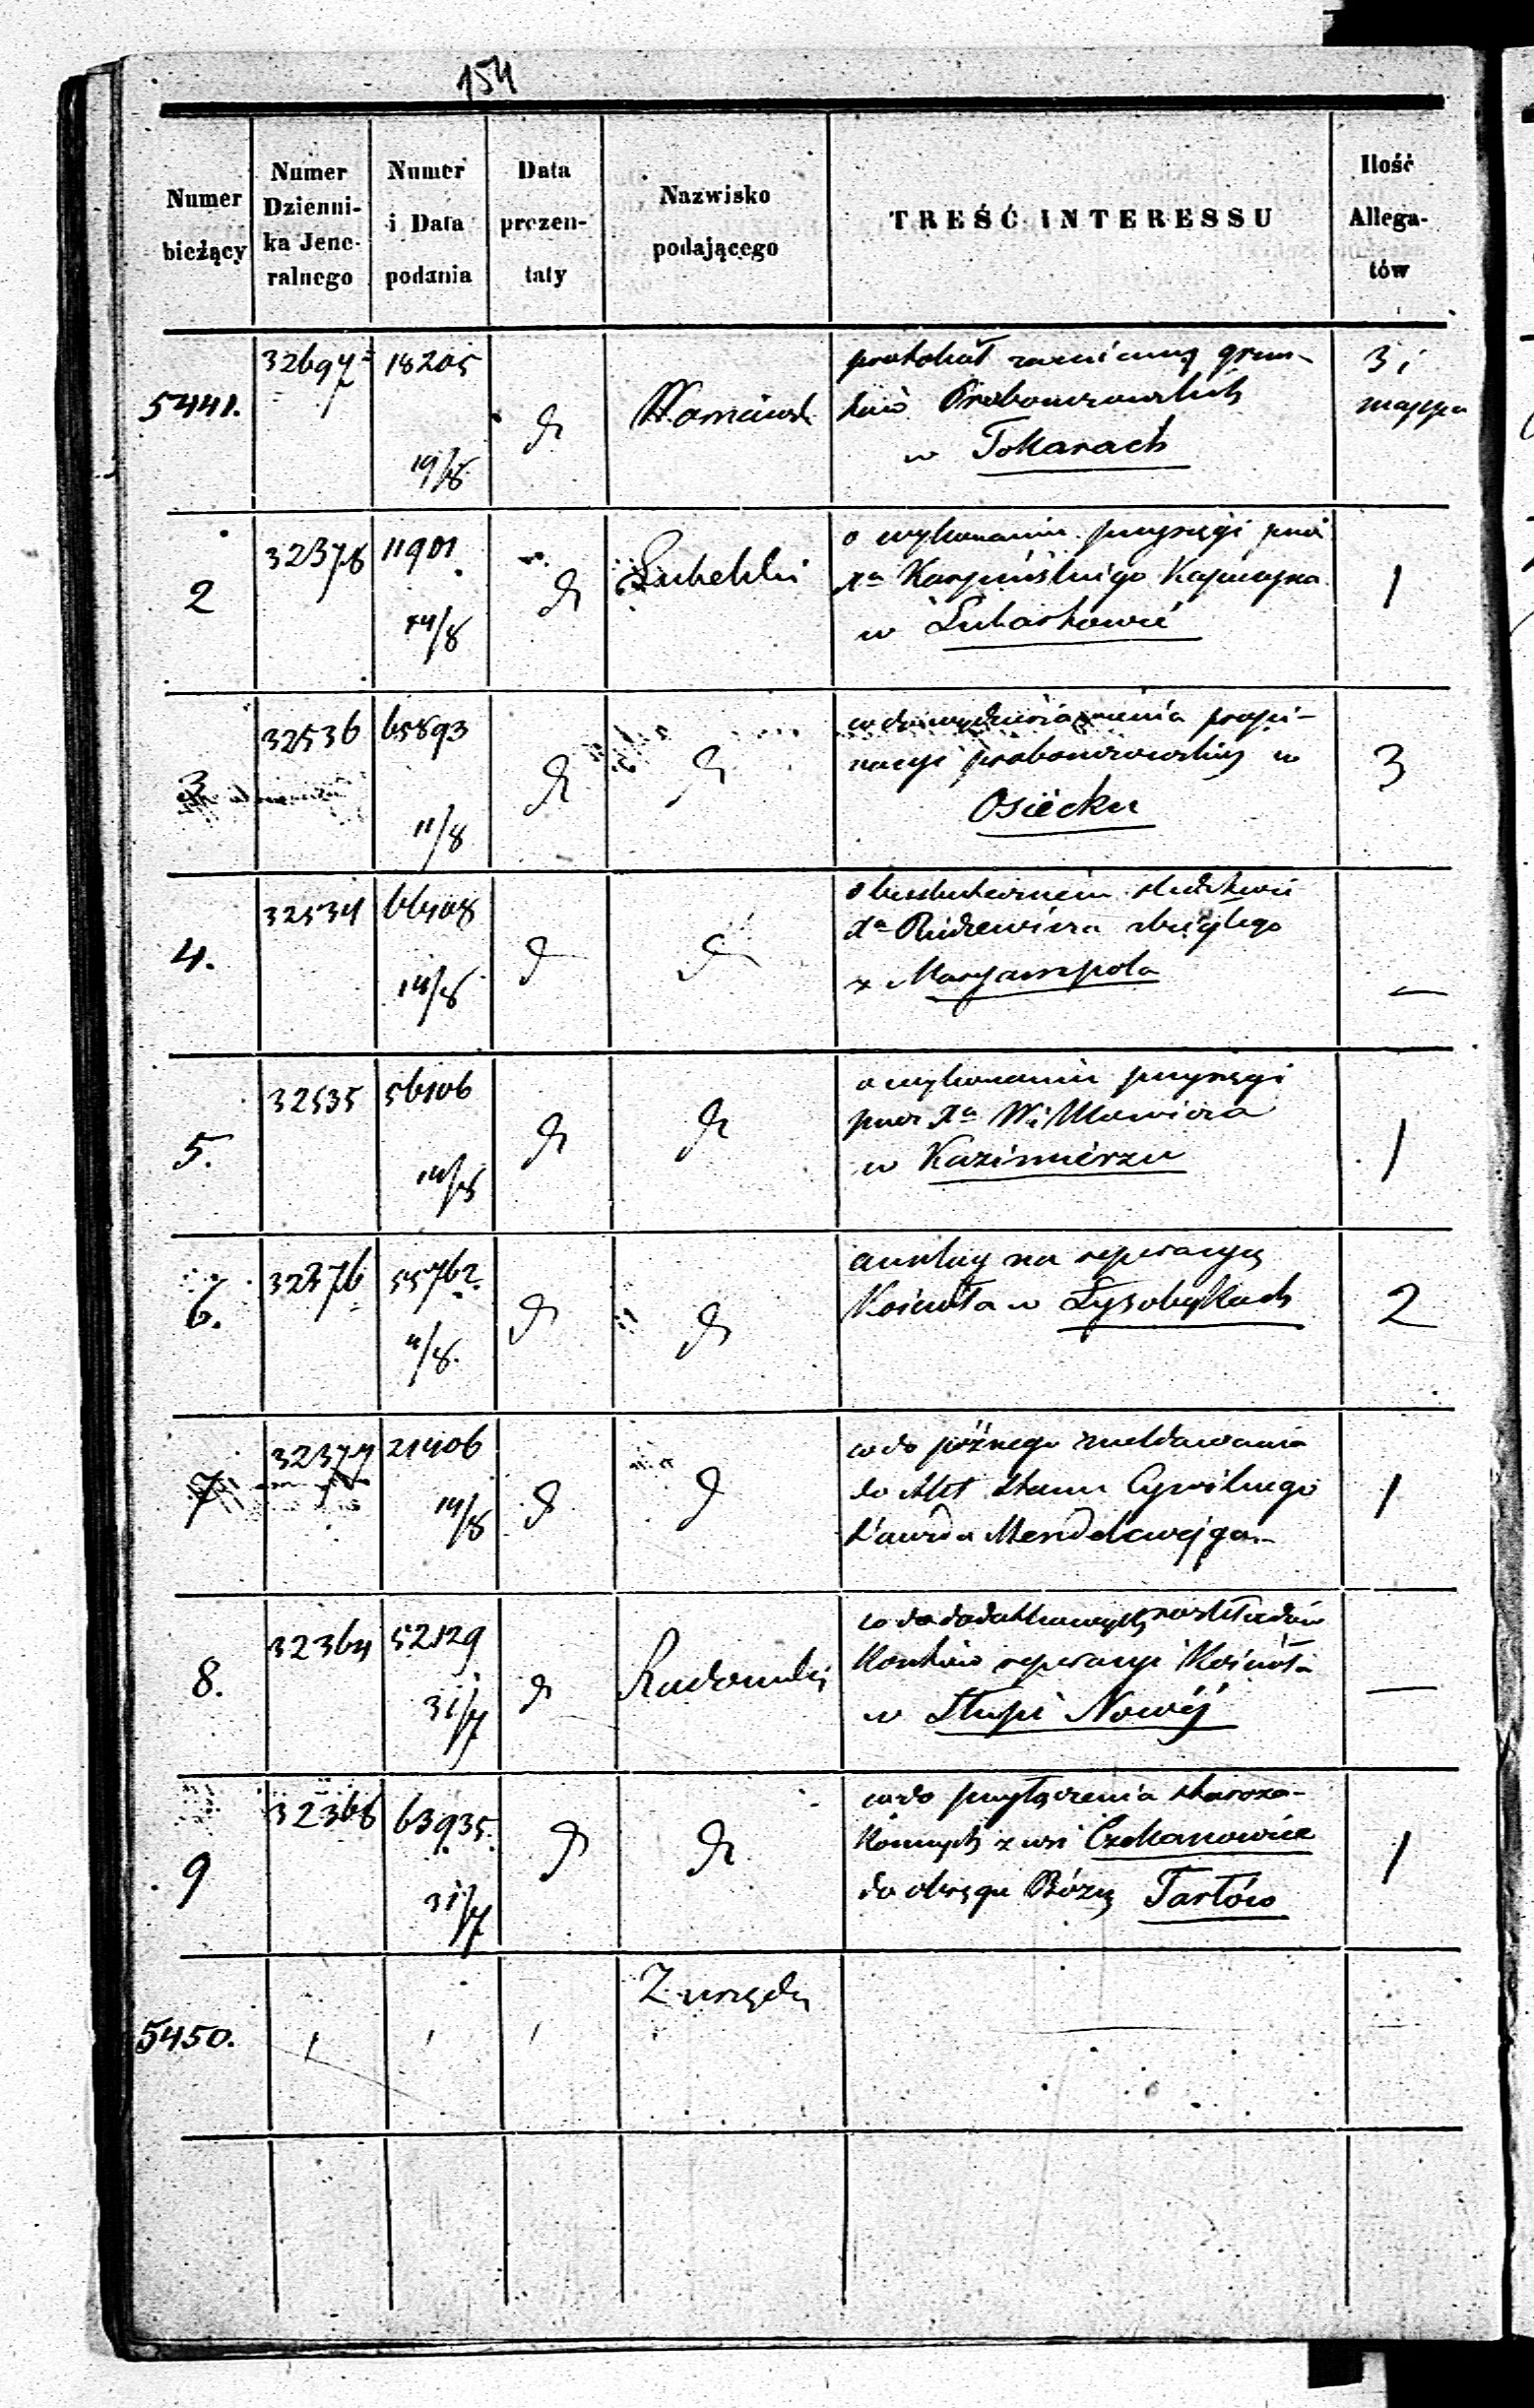 154
Numer bieżący
Numer Dzienni-
ka Jene-
ralnego
Numer i Data podania
Data prezen-
taty
Nazwisko podającego
TREŚĆ INTERESSU
Ilość Allega-
tów
5441.
32697
18205
19/8
protokół zamiany grun-
tów Proboszczowskich
w Tokarach
3 i
mappa
2
32378
11901
14/8
Lubelski
o wykonaniu przysięgi przez
Xa Karpińskiego Kapelana
w Lubartowie
1
3
32536
65893
11/8
co do wydzierżawienia propi-
nacyi proboszczowskiej w
Osiecku
3
4.
32534
14/8
o bezskutecznem śledztwie
Xa zbiegłego
z Maryampola
—
5.
32535
56106
14/8
o wykonaniu przysięgi
przez Xa
w Kazimierzu
1
6.
32376
55762
11/8
anszlag na reperacyę
Kościoła w Łysobykach
2
7
32377
21406
14/8
co do późnego zameldowania
do Akt Stanu Cywilnego
Mendelcwejga
1
8.
32364
52129
31/7
Radomski
co do dodatkowych rozkładów
kosztów reperacyi Kościoła
w Słupi Nowéj
—
9
32368
63935
31/7
co do przyłączenia staroza-
konnych z wsi Czekanowice
do okręgu Bóżn. Tarłów
1
5450.
Z urzędu